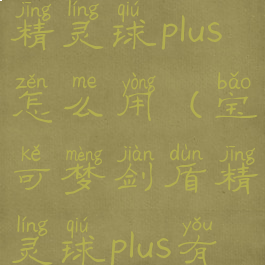 jīng líng qiú
精灵球plus
zěn me yòng bǎo
怎么用(宝
kě mèng jiàn dùn jīng
可梦剑盾精
líng qiú yǒu
灵球plus有